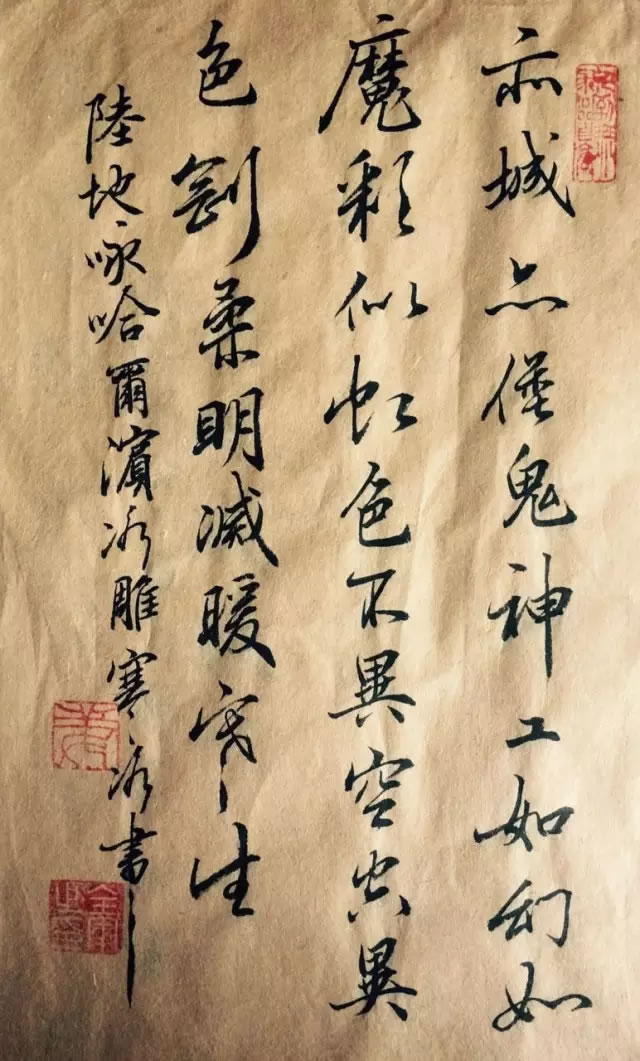 亦城亦堡鬼神工如幻如
魔彩似虹色不異空空異
色剛柔明滅暖寒生
陸地咏哈爾濱冰雕寒冰書